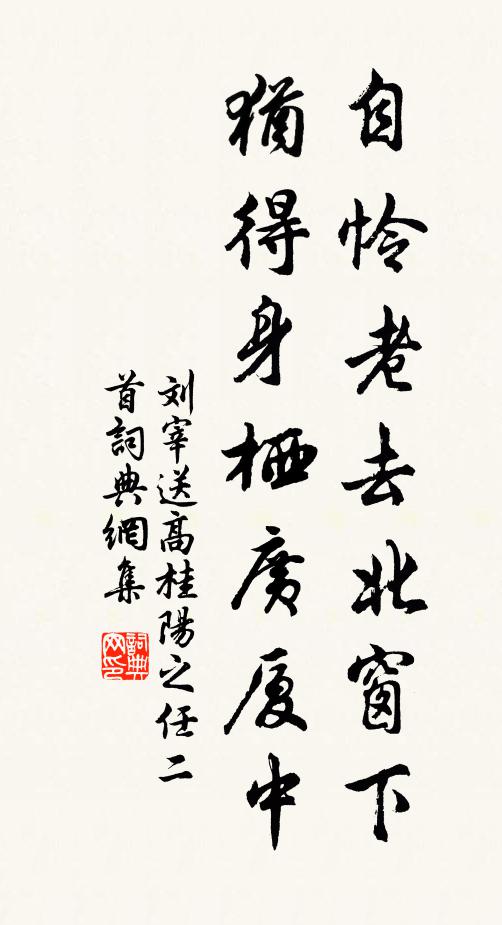 自怜老去北窗下
猶得身栖廣厦中
刘宰送高桂陽之任二
首詞典網集
詞典网印